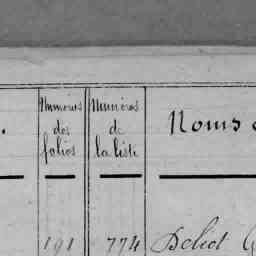 Numéros
des
folios
Numéros
de
la liste
Noms
191
774
Deliot